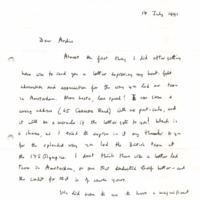 17 July 1991
Dear Archie
Almost the first thing I did after getting
here was to send you a letter expressing my heart-felt
admiration and appreciation for the way you led our team
in Amsterdam. More haste, less speed! I
wrong address (45 Common Road) with no post-code, and
it will be a miracle if the letter gets to you! Which is
a shame, as I tried to express in it my thanks to you
for the splendid way you led the British team at
the I
I don't think there was a better led
team in Amsterdam, or one that
better - and
the credit for that is of course yours.
We did seem to me to have a magnificent